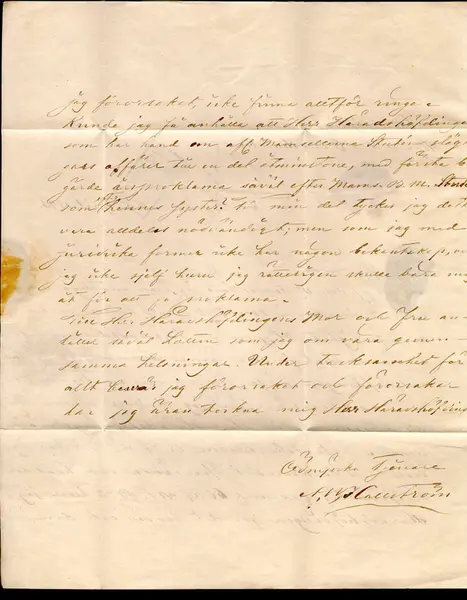 jag förorsakat, icke finna alltför ringa.
Kunde jag få anhålla att Herr Häradshöfdingen
som har hand om aff. Mamsellerna Stu
gars affärer till en del åtminstone, med första be
gärde årsproklama såväl efter Mams. B. M. Stu
som hennes syster? Så min del tyckes jag det
vara alldeles nödvändigt; men som jag med
juridiska former icke har någon bekantskap,
jag icke sjelf huru jag rätteligen skulle bära mig
åt för att få proklama.
Till Herr Häradshöfdingens Mor och Fru an-
håller såväl som jag om våra gemen-
samma helsningar. Under tacksamhet för
allt besvär jag förorsakat och förorsakar
har jag äran teckna mig Herr Häradshöfdin
Ödmjuke Tjenare
Hallström